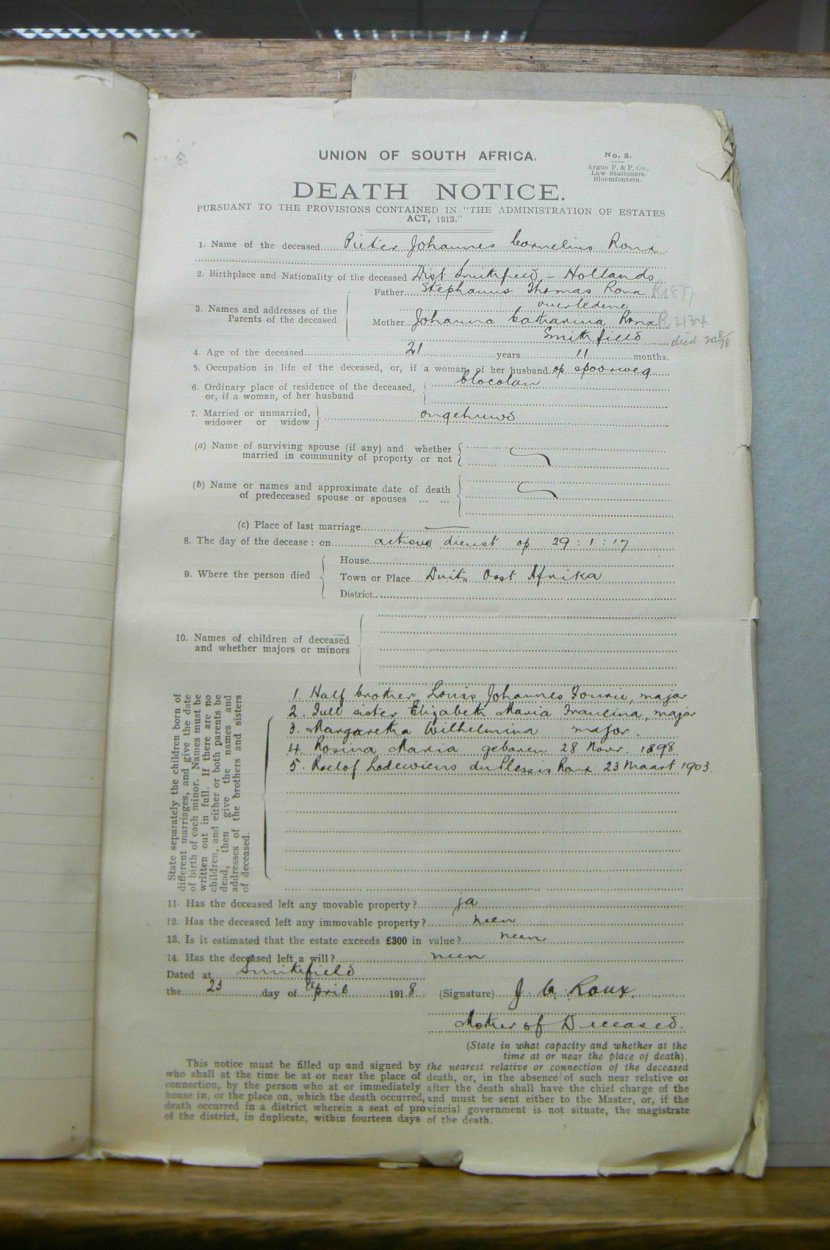 UNION OF SOUTH AFRICA.
No. 3.
Argus P. & P. Co.,
Law Stationers,
Bloemfontein.
DEATH NOTICE.
PURSUANT TO THE PROVISIONS CONTAINED IN "THE ADMINISTRATION OF ESTATES
ACT, 1913."
1. Name of the deceased Pieter Johannes Cornelius Roux
2. Birthplace and Nationality of the deceased Dist Smithfield - Hollands
3. Names and addresses of the Parents of the deceased
Father Stephanus Thomas Roux
overledene
Mother Johanna Catharina Roux
Smithfield
died
4. Age of the deceased 21 years 11 months.
5. Occupation in life of the deceased, or, if a woman, of her husband. op spoorweg
6. Ordinary place of residence of the deceased, or, if a woman, of her husband
Clocolan
7. Married or unmarried, widower or widow
ongehuwd
(a) Name of surviving spouse (if any) and whether
married in community of property or not
(b) Name or names and approximate date of death
of predeceased spouse or spouses ... ...
(c) Place of last marriage
8. The day of the decease: on actieve dienst op 29:1:17
9. Where the person died
House
Town or Place Duits Oost Afrika
District
10. Names of children of deceased
and whether majors or minors
State separately the children born of
different marriages, and give the date
of birth of each minor. Names must be
written out in full. If there are no
children, and either or both parents be
dead, then give the names and
addresses of the brothers and sisters
of deceased.
1. Half brother Louis Johannes Fourie, major
2. Full sister Elizabeth Maria Francina, major
3. Margaretha Wilhelmina major.
4. Rosina Maria geboren 28 Novr. 1898
5. Roelof Lodewicus du Plessis Roux 23 Maart 1903
11. Has the deceased left any movable property? ja
12. Has the deceased left any immovable property? neen
13. Is it estimated that the estate exceeds £300 in value? neen
14. Has the deceased left a will? neen
Dated at Smithfield
the 23 day of April 1918
(Signature) J. C. Roux.
Mother of Deceased.
(State in what capacity and whether at the
time at or near the place of death).
This notice must be filled up and signed by the nearest relative or connection of the deceased
who shall at the time be at or near the place of death, or, in the absence of such near relative or
connection, by the person who at or immediately after the death shall have the chief charge of the
house in, or the place on, which the death occurred, and must be sent either to the Master, or, if the
death occurred in a district wherein a seat of provincial government is not situate, the magistrate
of the district, in duplicate, within fourteen days of the death.